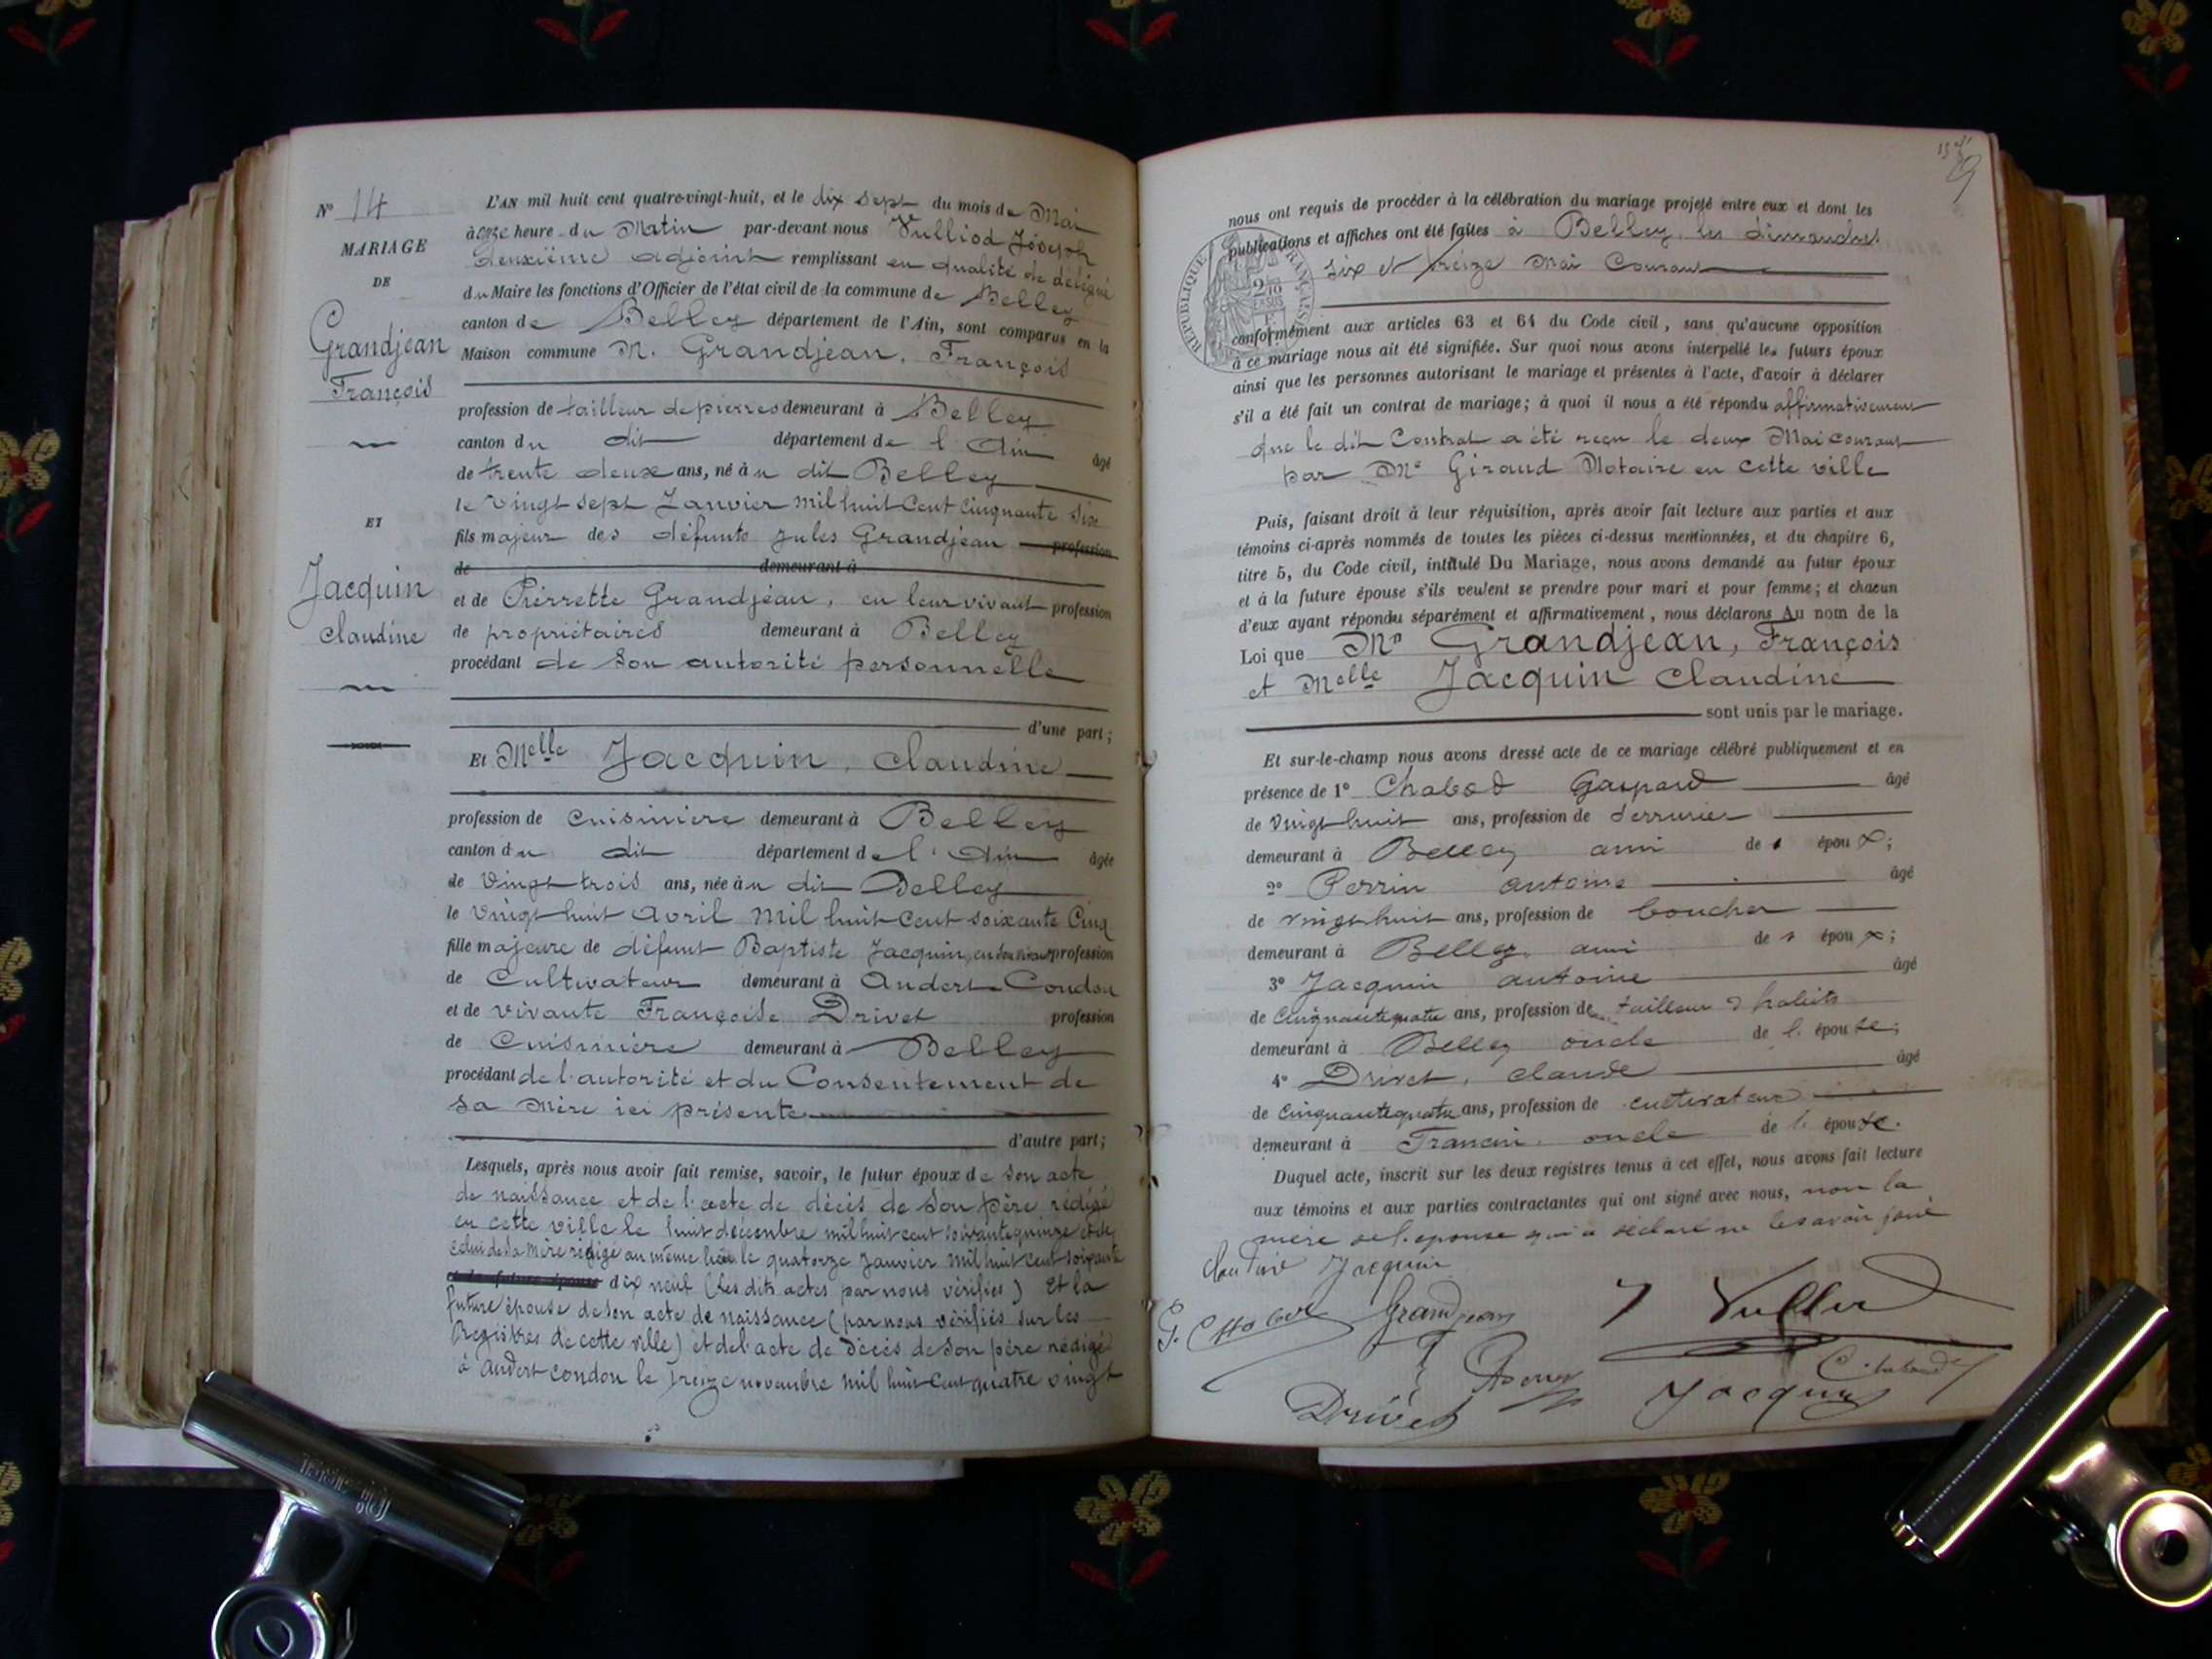 N° 14
MARIAGE
DE
Grandjean
François
ET
Jacquin
Claudine
L'AN mil huit cent quatre-vingt-huit, et le dix sept du mois de Mai
à onze heure du Matin par-devant nous Vulliod Joseph
deuxième adjoint remplissant en qualité de délégué
du Maire les fonctions d'Officier de l'état civil de la commune de Belley
canton de Belley département de l'Ain, sont comparus en la
Maison commune M. Grandjean, François
profession de tailleur de pierres demeurant à Belley
canton du dit département de l'Ain âgé
de trente deux ans, né au dit Belley
le vingt sept Janvier mil huit Cent Cinquante Six
fils majeur des défunts Jules Grandjean profession
de demeurant à
et de Pierrette Grandjean, en leur vivant profession
de propriétaires demeurant à Belley
procédant de son autorité personnelle
d'une part;
Et Melle Jacquin, Claudine
profession de Cuisinière demeurant à Belley
canton du dit département de l'Ain âgée
de Vingt trois ans, née au dit Belley
le Vingt huit Avril Mil huit Cent soixante Cinq
fille majeure de défunt Baptiste Jacquin, en son vivant profession
de Cultivateur demeurant à Andert-Condon
et de vivante Françoise Drivet profession
de Cuisinière demeurant à Belley
procédant de l'autorité et du Consentement de
sa Mère ici présente
d'autre part;
Lesquels, après nous avoir fait remise, savoir, le futur époux de son acte
de naissance et de l'acte de décès de son père rédigé
en cette ville le huit décembre mil huit cent soixante quinze et de
celui de sa mère rédigé au même lieu le quatorze Janvier mil huit cent soixante
dix neuf (les dits actes par nous vérifiés) Et la
future épouse de son acte de naissance (par nous vérifiés sur les
Registres de cette ville) et de l'acte de Décès de son père rédigé
à Andert condon le treize novembre mil huit cent quatre vingt
9
nous ont requis de procéder à la célébration du mariage projeté entre eux et dont les
publications et affiches ont été faites à Belley les dimanches
Six et treize Mai Courant
RÉPUBLIQUE FRANÇAISE
conformément aux articles 63 et 64 du Code civil, sans qu'aucune opposition
à ce mariage nous ait été signifiée. Sur quoi nous avons interpellé les futurs époux
ainsi que les personnes autorisant le mariage et présentes à l'acte, d'avoir à déclarer
s'il a été fait un contrat de mariage; à quoi il nous a été répondu affirmativement
que le dit Contrat a été reçu le deux Mai courant
par Me Giraud Notaire en cette ville
Puis, faisant droit à leur réquisition, après avoir fait lecture aux parties et aux
témoins ci-après nommés de toutes les pièces ci-dessus mentionnées, et du chapitre 6,
titre 5, du Code civil, intitulé Du Mariage, nous avons demandé au futur époux
et à la future épouse s'ils veulent se prendre pour mari et pour femme; et chacun
d'eux ayant répondu séparément et affirmativement, nous déclarons Au nom de la
Loi que Mr Grandjean, François
et Melle Jacquin Claudine
sont unis par le mariage.
Et sur-le-champ nous avons dressé acte de ce mariage célébré publiquement et en
présence de 1° Chabod Gaspard âgé
de Vingt huit ans, profession de serrurier
demeurant à Belley ami de l'épou x;
2° Perrin antoine âgé
de vingt huit ans, profession de boucher
demeurant à Belley ami de l'épou x;
3° Jacquin antoine âgé
de Cinquante quatre ans, profession de tailleur d'habits
demeurant à Belley oncle de l'épou se;
4° Drivet, Claude âgé
de cinquante quatre ans, profession de cultivateur
demeurant à oncle de l'épou se.
Duquel acte, inscrit sur les deux registres tenus à cet effet, nous avons fait lecture
aux témoins et aux parties contractantes qui ont signé avec nous, non la
mère de l'épouse qui a déclaré ne le savoir faire
Claudine Jacquin
Grandjean
Drivet
Jacquin